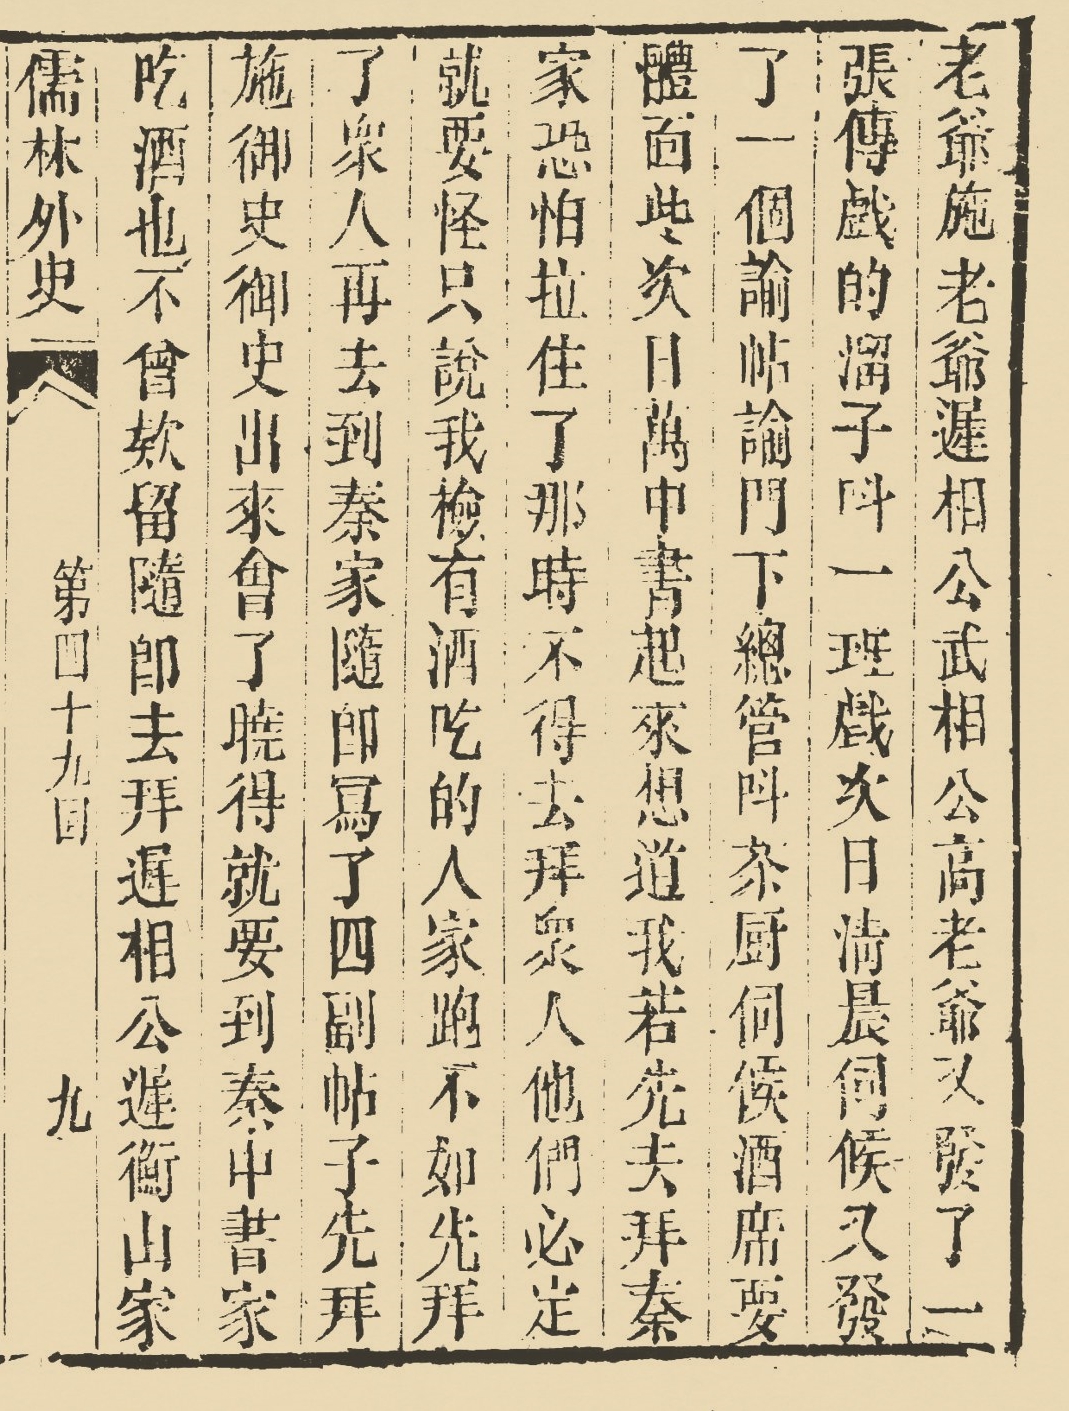 老爺施老爺遲相公武相公高老爺又發了一
張傳戲的溜子呌一班戲次日淸晨伺候又發
了一個諭帖諭門下總管呌茶厨伺候酒席要
體面些次日萬中書起來想道我若先去拜秦
家恐怕拉住了那時不得去拜衆人他們必定
就要怪只說我檢有酒吃的人家跑不如先拜
了衆人再去到秦家隨卽寫了四副帖子先拜
施御史御史出來會了曉得就要到秦中書家
吃酒也不曾欵留隨卽去拜遲相公遲衡山家
儒林外史 第四十九囘 九